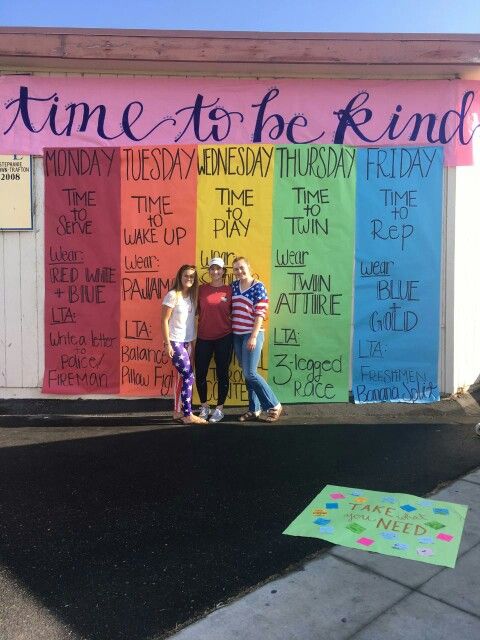 time to be kind
STEPHANIE
2008
MONDAY
TIME
to
Serve
Wear:
RED WHITE
+ BLUE
LTA:
Write a letter
to
Police/
FIREMAN
TUESDAY
TIME
to
WAKE UP
Wear:
PAJAMA
LTA:
Balance
Pillow Fight
WEDNESDAY
TIME
to
PLAY
Wear
THURSDAY
TIME
to
TWIN
Wear
TWIN
ATTIRE
LTA:
3-legged
Race
FRIDAY
TIME
to
Rep
Wear
BLUE
+
GOLD
LTA:
FRESHMEN
Banana Split
TAKE what
you NEED